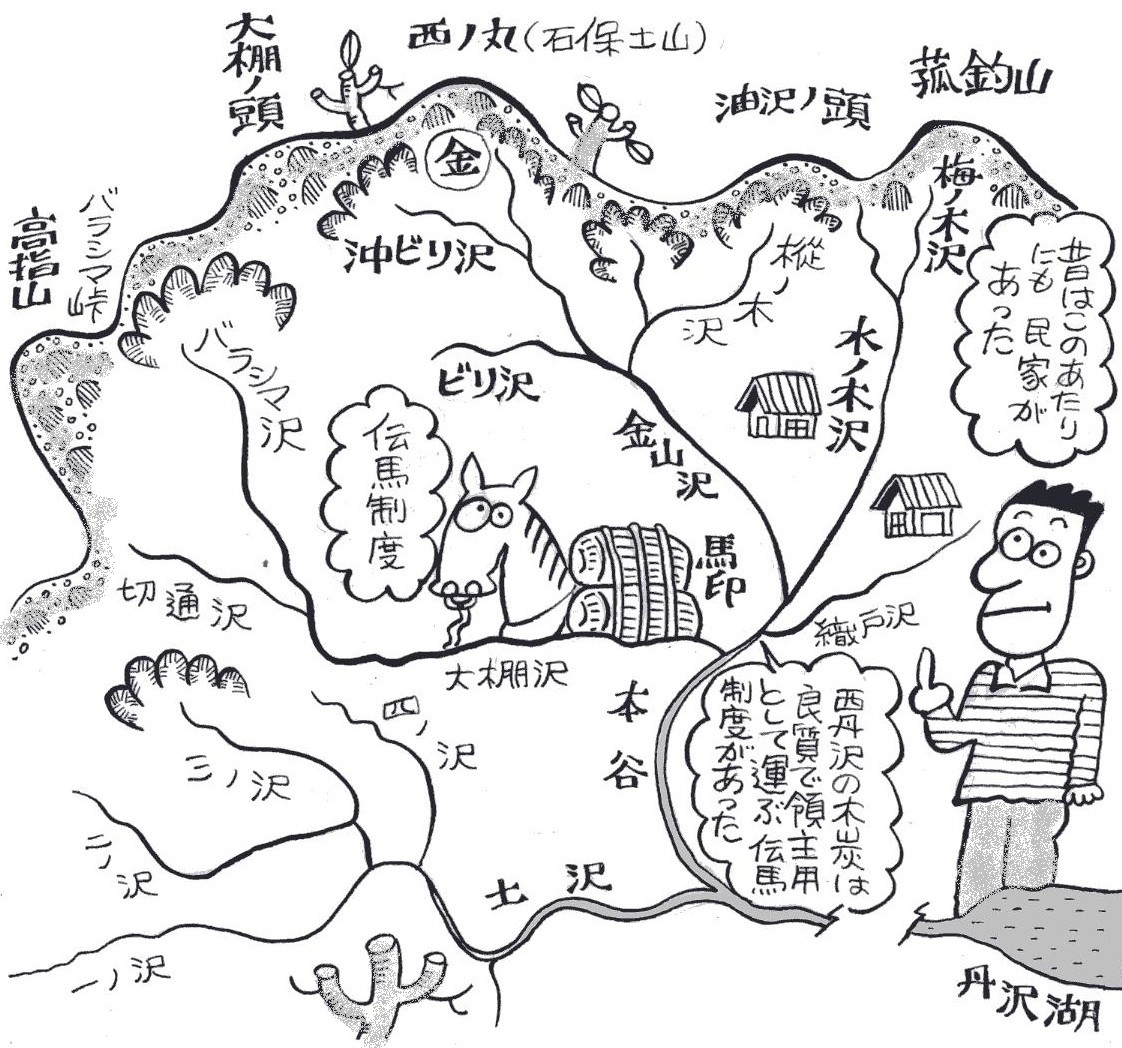 大棚ノ頭
西ノ丸(石保土山)
油沢ノ頭
菰釣山
高指山
バラシマ峠
金
沖ビリ沢
樅ノ木沢
梅ノ木沢
昔はこのあたり
にも民家が
あった
バラシマ沢
ビリ沢
金山沢
水ノ木沢
伝馬制度
馬印
切通沢
大棚沢
織戸沢
本谷
西丹沢の木炭は
良質で領主用
として運ぶ伝馬
制度があった
四ノ沢
三ノ沢
二ノ沢
一ノ沢
土沢
丹沢湖